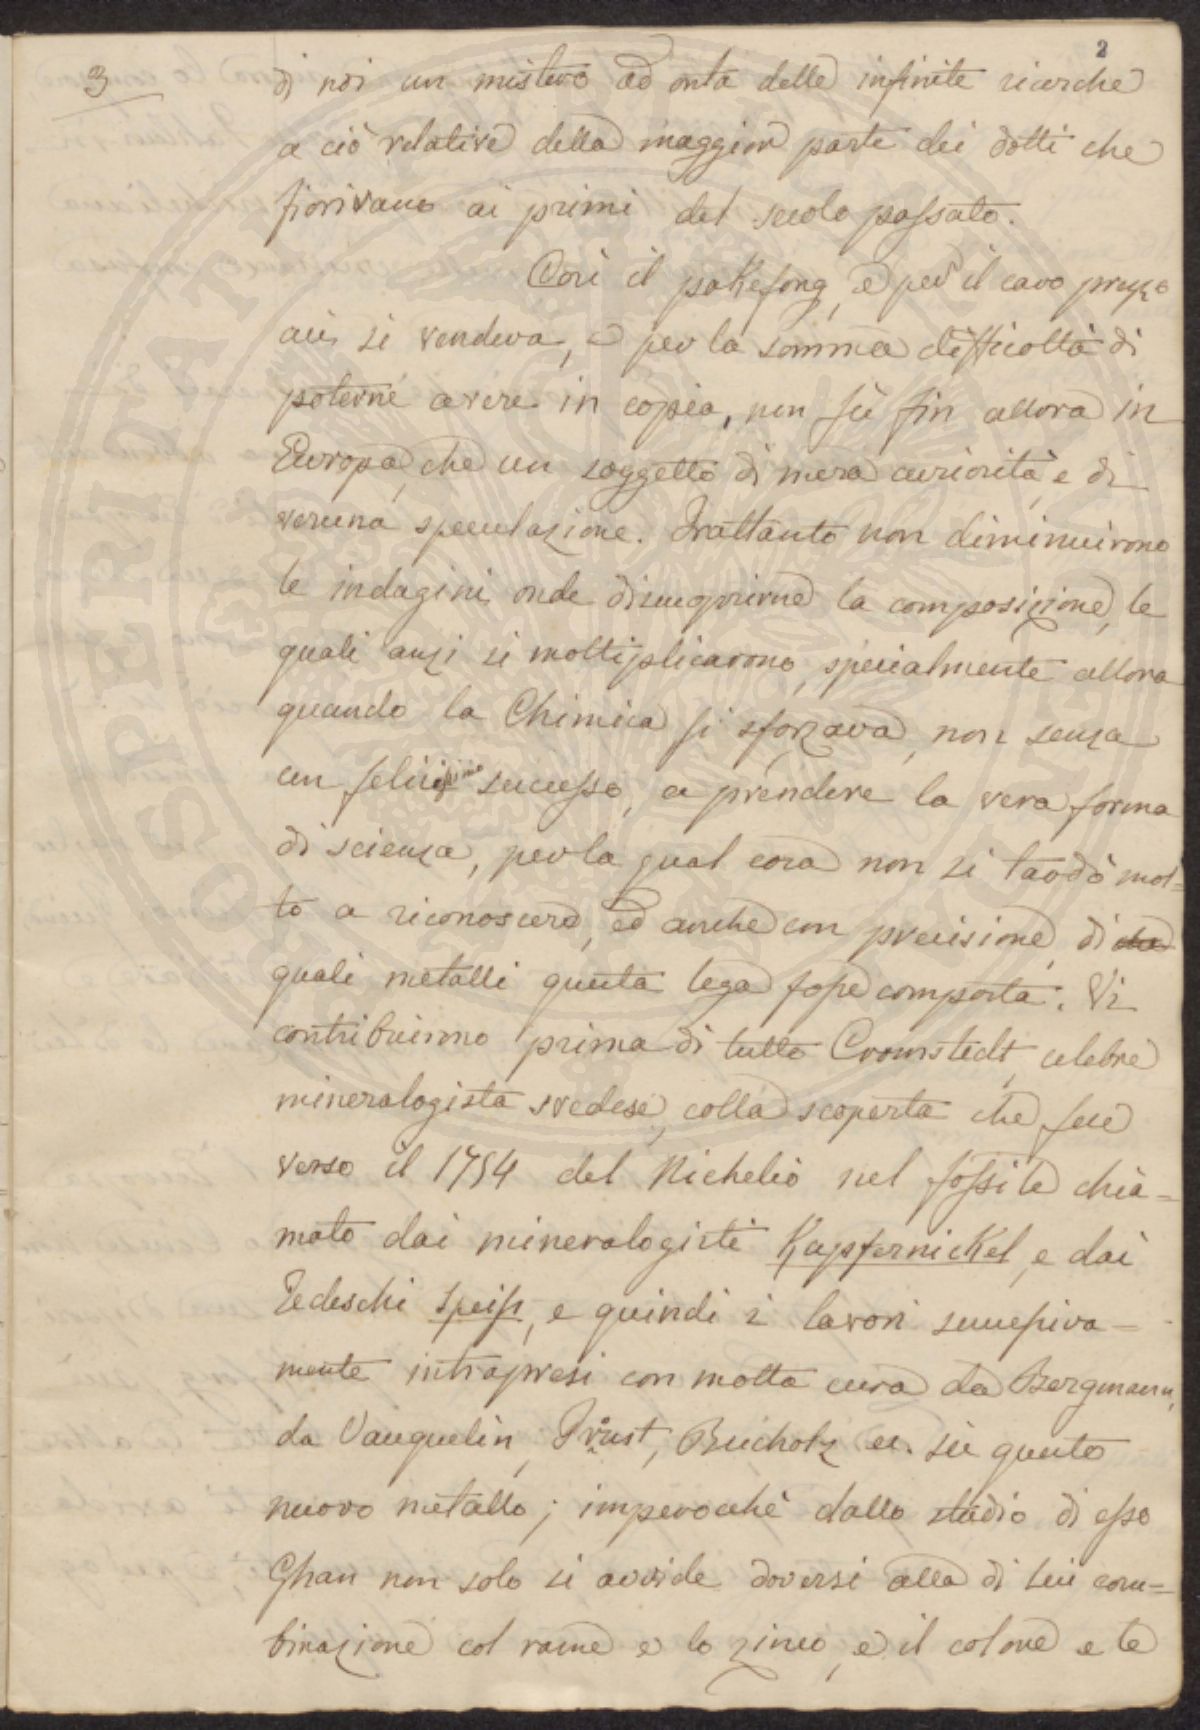 2
3
di noi un mistero ad onta delle infinite ricerche
a ciò relative della maggior parte dei dotti che
fiorivano ai primi del secolo passato.
Così il pakefong, e pel il caro prezzo
cui si vendeva, e per la somma difficoltà di
poterne avere in copia, non fù fin allora in
Europa, che un soggetto di mera curiosità, e di
veruna speculazione. Frattanto non diminuirono
le indagini onde discuoprirne la composizione, le
quali anzi si moltiplicarono, specialmente allora
quando la Chimica si sforzava, non senza
un felicissimo successo, a prendere la vera forma
di scienza, per la qual cosa non si tardò mol=
to a riconoscere, ed anche con precisione, di
quali metalli questa lega fosse composta. Vi
contribuirono prima di tutto Cronstedt, celebre
mineralogista svedese, colla scoperta che fece
verso il 1754 del Nichelio nel fossile chia=
mato dai mineralogisti Kupfernickel, e dai
Tedeschi Speiss, e quindi i lavori successiva=
mente intrapresi con molta cura da Bergmann,
da Vauquelin, Proust, Bucholz ec. su questo
nuovo metallo; imperocchè dallo studio di esso
Ghan non solo si avvide doversi alla di lui com=
binazione col rame e lo zinco, e il colore e le
HOSPERITATI PUBLICAE AUGENDAE